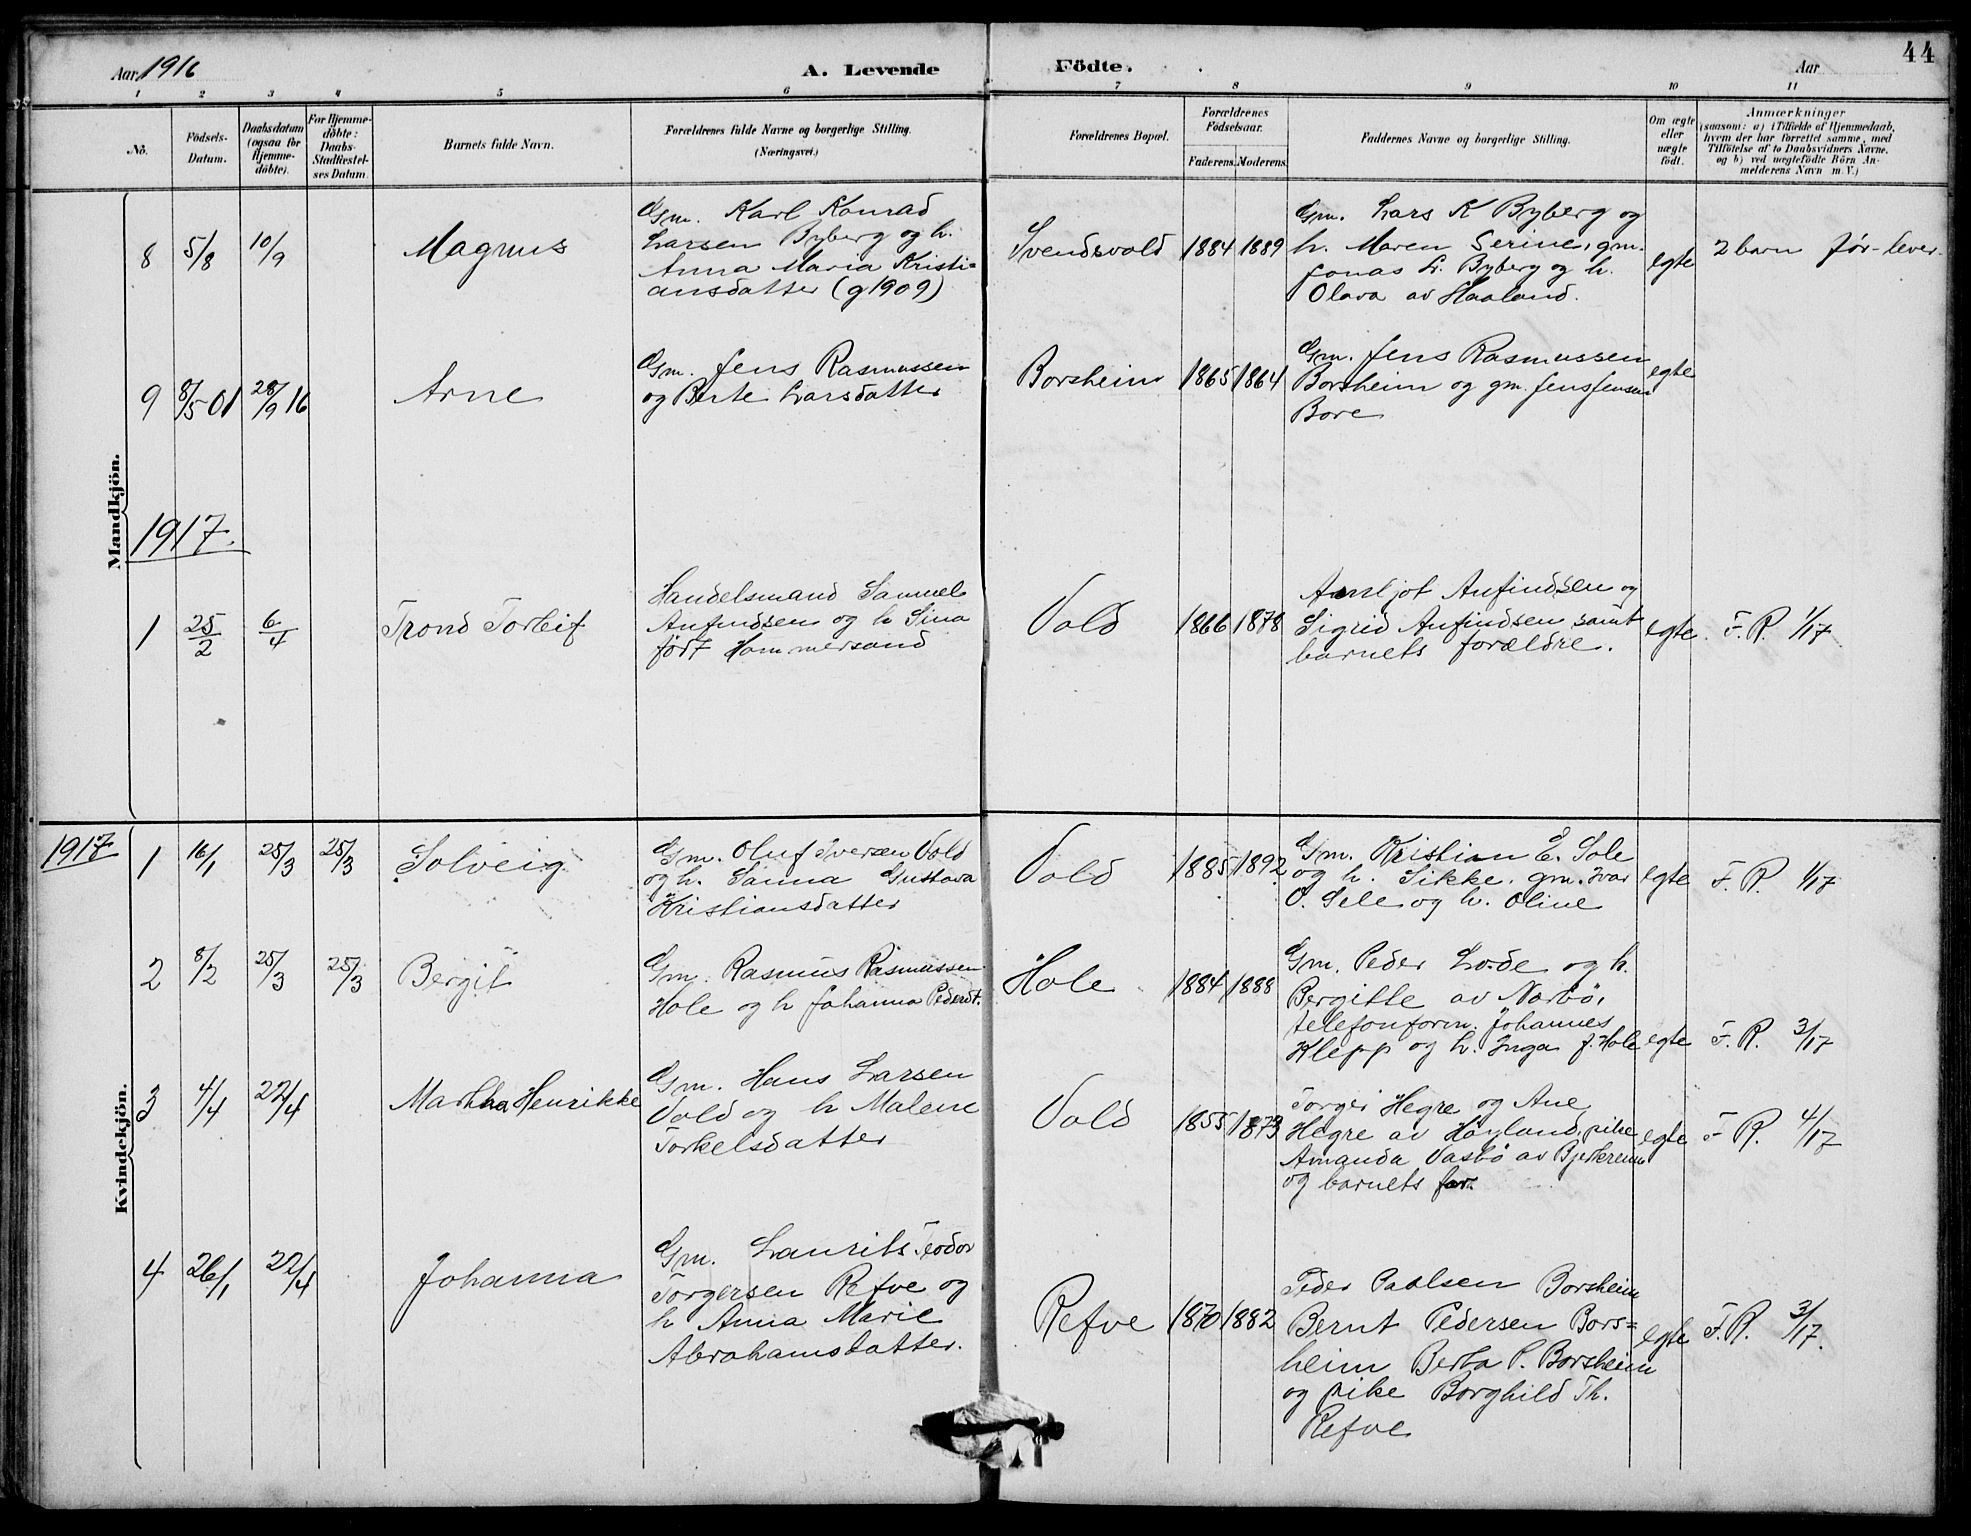 44
Aar 1916
A. Levende Födte.
Aar
1 2 3 4 5 6 7 8 9 10 11
No.
Födsels-Datum.
Daabsdatum (ogsaa for Hjemme-döbte).
For Hjemme-döbte: Daabs-Stadfæstel-ses Datum.
Barnets fulde Navn.
Forældrenes fulde Navne og borgerlige Stilling.
(Næringsvei.)
Forældrenes Bopæl.
Forældrenes Födselsaar.
Faderens. Moderens.
Faddernes Navne og borgerlige Stilling.
Om ægte eller uægte födt.
Anmærkninger
(saasom: a) i Tilfælde af Hjemmedaab,
hvem der har forrettet samme, med
Tilföielse af to Daabsvidners Navne,
og b) ved uægtefödte Börn An-
melderens Navn m.V.)
Mandkjön.
8 5/8 10/9 Magnus
Gm. Karl Konrad
Larsen Byberg og h.
Anna Maria Kristi=
ansdatter (g 1909)
Svendsvold 1884 1889
Gm. Lars K Byberg og
h. Maren Serine, gm.
Jonas L. Byberg og h.
Olava av Haaland.
egte
2 barn før - lever.
9 8/5 01 28/9 16 Arne
Gm. Jens Rasmussen
og Berte Larsdatter
Borsheim 1865 1864
Gm. Jens Rasmussen
Borsheim og gm. Jens Jensen
Bore
egte
1917.
1 25/2 6/4 Trond Torleif
Handelsmand Samuel
Anfindsen og h Sina
født Hommersand
Vold 1866 1878
Arnljot Anfindsen og
Sigrid Anfindsen samt
barnets forældre.
egte. F. R. 1/17
1917
Kvindekjön.
1 16/1 25/3 25/3 Solveig
Gm. Oluf Iversen Vold
og h. Sanna Gustava
Kristiansdatter
Vold 1885 1892
Gm. Kristian E. Sole
og h. Sikke. gm. Ivar
O. Sele og h. Oline
egte F. R. 1/17
2 8/2 25/3 25/3 Bergit
Gm. Rasmus Rasmussen
Hole og h Johanna Pedersdt.
Hole 1884 1888
Gm. Peder Lode og h.
Bergitte av Nærbø,
telefonform. Johannes
Klepp og h. Inga f. Hole
egte F. R. 3/17
3 4/4 22/4 Martha Henrikke
Gm. Hans Larsen
Vold og h Malene
Torkelsdatter
Vold 1855 1873
Torger Hegre og Ane
Hegre av Høyland, pike
Amanda Vasbø av Bjerkreim
og barnets far.
egte F. R. 4/17
4 26/1 22/4 Johanna
Gm. Laurits Teodor
Torgersen Refve og
h Anna Marie
Abrahamsdatter.
Refve 1870 1882
Peder Paalsen Borsheim
Bernt Pedersen Bors=
heim Berta P. Borsheim
og pike Borghild Th.
Refve
egte F. R. 3/17.